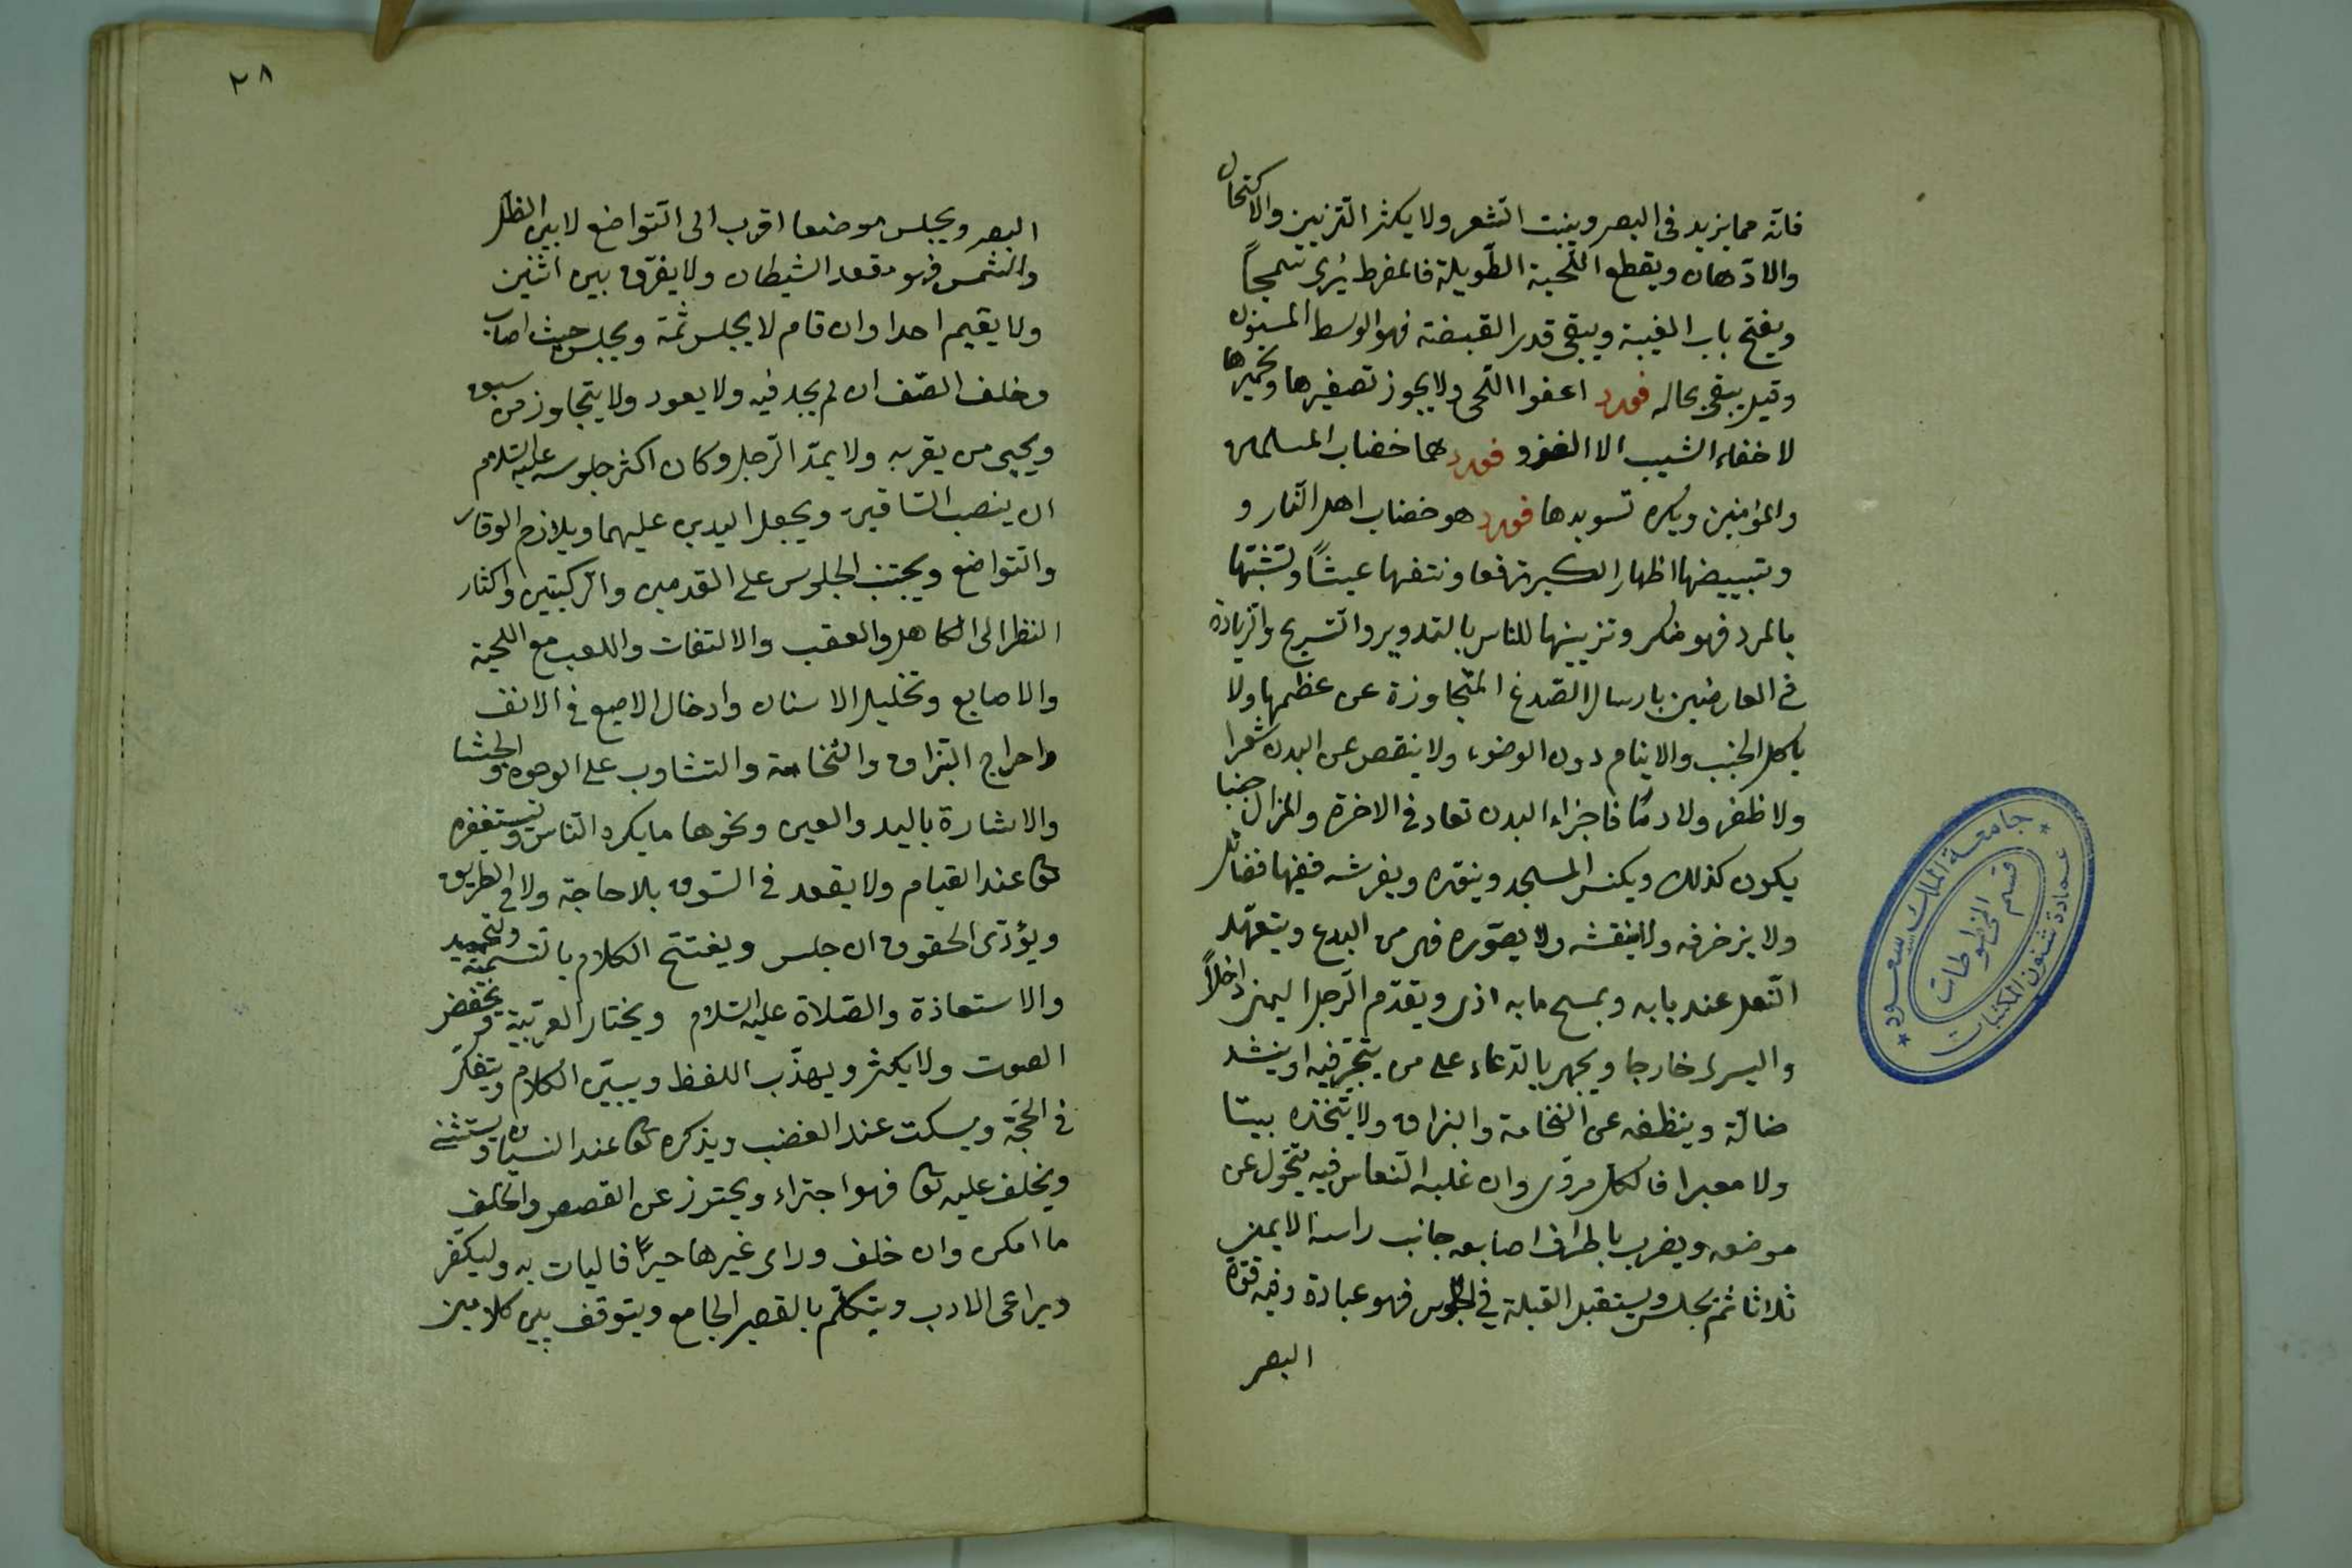 فانه مما يزيد فى البصر وينبت الشعر ولا يكثر التزيين والاكتحال
والادّهان ويقطع اللّحية الطّويلة فالمفرط يُرى سَمجاً
ويفتح باب الغيبة ويبقى قدر القبضة فهو الوسط المسنون
وقيل يبقى بحاله فورد اعفوا اللّحى ولا يجوز تصفيرها وتحميرها
لاخفاء الشيب الا الغزو فورد هما خضاب المسلمين
والمؤمنين ويكره تسويدها فورد هو خضاب اهل النّار و
وتبييضها اظهار الكبر ترفعا ونتفها عبثاً وتشبّها
بالمرد فهو منكر وتزيينها للناس بالتدوير والتسريح والزيادة
فى العارضين بارسال الصّدغ المتجاوزة عن عظمها ولا
ياكل الجنب والاينام دون الوضوء ولا ينقص عن البدن شعرا
ولا ظفر ولا دمًا فاجزاء البدن تعاد فى الاخرة والمزال جنبا
يكون كذلك ويكنس المسجد وينوّره ويفرشه ففيها فضائل
ولا يزخرفه ولا ينقشه ولا يصوّره فهى من البدع ويتعهّد
النّعل عند بابه ويمسح ما به اذى ويقدّم الرّجل اليمنى داخلاً
واليسرى خارجا ويجهر بالدّعاء على من يتّجر فيه او ينشد
ضالّة وينظفه عن النخامة والبزاق ولا يتّخذه بيتا
ولا معبرا فالكل مروى وان غلبه النّعاس فيه يتحوّل عن
موضعه ويضرب باطراف اصابعه جانب راسه الايمن
ثلاثا ثمّ يجلس ويستقبل القبلة فى الجلوس فهو عبادة وفيه قوّة
البصر
٢٨
البصر ويجلس موضعا اقرب الى التّواضع لا بين الظل
والشمس فهو مقعد الشيطان ولا يفرّق بين اثنين
ولا يقيم احدا وان قام لا يجلس ثمة ويجلس حيث اصاب
وخلف الصّف ان لم يجد فيه ولا يعود ولا يتجاوز من سبق
ويحيى من يقربه ولا يمدّ الرّجل وكان اكثر جلوسه عليه السّلام
ان ينصب السّاقين ويجعل اليدين عليهما ويلازم الوقار
والتّواضع ويجتنب الجلوس على القدمين والرّكبتين واكثار
النظر الى الكاهل والعقب والالتفات واللعب مع اللحية
والاصابع وتخليل الاسنان وادخال الاصبع فى الانف
واخراج البزاق والنّخامة والتثاوب على الوجوه والجشا
والاشارة باليد والعين ونحوها ما يكره النّاس ويستغفره
تعا عند القيام ولا يقعد فى السّوق بلا حاجة ولا فى الطريق
ويؤدّى الحقوق ان جلس ويفتتح الكلام بالتّسمية والتحميد
والاستعاذة والصّلاة عليه السّلام ويختار العربيّة ويخفض
الصوت ولا يكثر ويهذّب اللفظ ويبيّن الكلام ويتفكّر
فى الحجّة ويسكت عند الغضب ويذكره تعا عند النسيان ويستثنى
ويحلف عليه تعا فهو اجتراء ويحترز عن القصص والحلف
ما امكن وان حلف وراى غيرها خيرًا فاليات به وليكفّر
ويراعى الادب ويتكلّم بالقصير الجامع ويتوقف بين كلامين
جامعة الملك سعود
قسم المخطوطات
عمادة شئون المكتبات